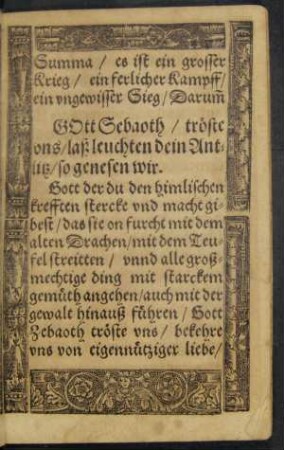 Summa / es ist ein grosser
Krieg / ein ferlicher Kampff /
ein vngewisser Sieg / Darum̃
GOtt Sebaoth / tröste
vns / laß leuchten dein Ant-
litz / so genesen wir.
Gott der du den himlischen
krefften stercke vnd macht gi-
best / das sie on furcht mit dem
alten Drachen / mit dem Teu-
fel streitten / vnnd alle groß-
mechtige ding mit starckem
gemüth angehen / auch mit der
gewalt hinauß führen / Gott
Zebaoth tröste vns / bekehre
vns von eigennütziger liebe /